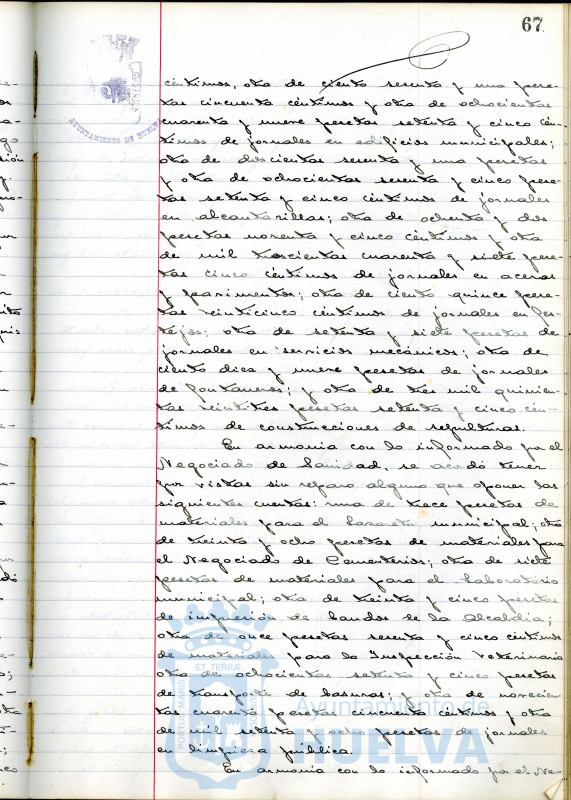 67
AYUNTAMIENTO DE HUELVA
céntimos, otra de ciento sesenta y una pese-
tas cincuenta céntimos y otra de ochocientas
cuarenta y nueve pesetas setenta y cinco cén-
timos de jornales en edificios municipales;
otra de doscientas sesenta y una pesetas
y otra de ochocientas sesenta y cinco pese-
tas setenta y cinco céntimos de jornales
en alcantarillas; otra de ochenta y dos
pesetas noventa y cinco céntimos y otra
de mil trescientas cuarenta y siete pese-
tas cinco céntimos de jornales en aceras
y pavimentos; otra de ciento quince pese-
tas veinticinco céntimos de jornales en fes-
tejos; otra de setenta y siete pesetas de
jornales en servicios mecánicos; otra de
ciento diez y nueve pesetas de jornales
de fontaneros; y otra de tres mil quinien-
tas veintitres pesetas setenta y cinco cén-
timos de construcciones de sepulturas.
En armonia con lo informado por el
Negociado de Sanidad, se acordó tener
por vistas sin reparo alguno que oponer las
siguientes cuentas: una de trece pesetas de
materiales para el Lazareto municipal; otra
de treinta y ocho pesetas de materiales para
el Negociado de Cementerios; otra de siete
pesetas de materiales para el Laboratorio
municipal; otra de treinta y cinco pesetas
de impresión de bandos de la Alcaldia;
otra de once pesetas sesenta y cinco céntimos
de materiales para la Inspección Veterinaria
otra de ochocientas setenta y cinco pesetas
de transporte de basuras; y otra de novecien
tas cuarenta pesetas cincuenta céntimos y otra
de mil setenta y ocho pesetas de jornales
en limpieza pública.
En armonia con lo informado por el Ne-
PORTUS MARIS
ET TERRAE
Ayuntamiento de
HUELVA